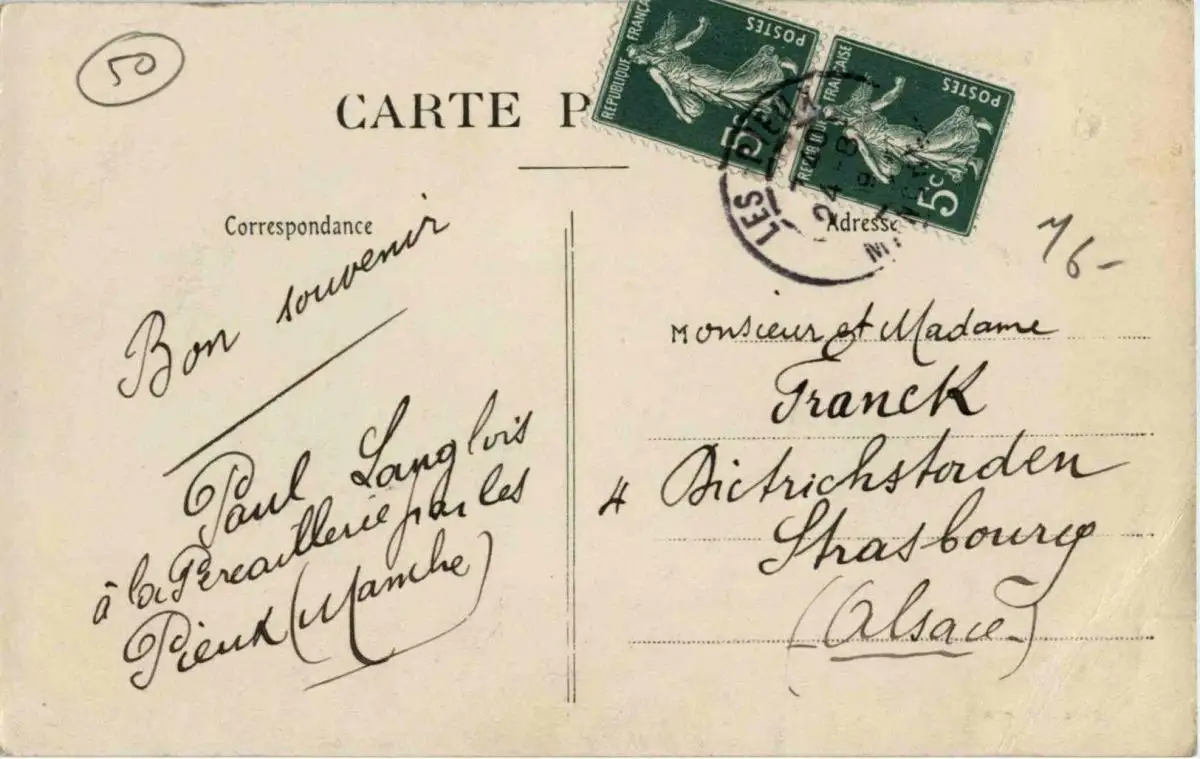 50
CARTE P
REPUBLIQUE FRANÇA
POSTES
5
FRANÇAISE
POSTES
5c
LES PIEU
24 - 8
Correspondance
Adresse
Bon souvenir
Paul Langlois
à la Percaillerie par les
Pieux (Manche)
Monsieur et Madame
Franck
4 Dietrichstaden
Strasbourg
(Alsace)